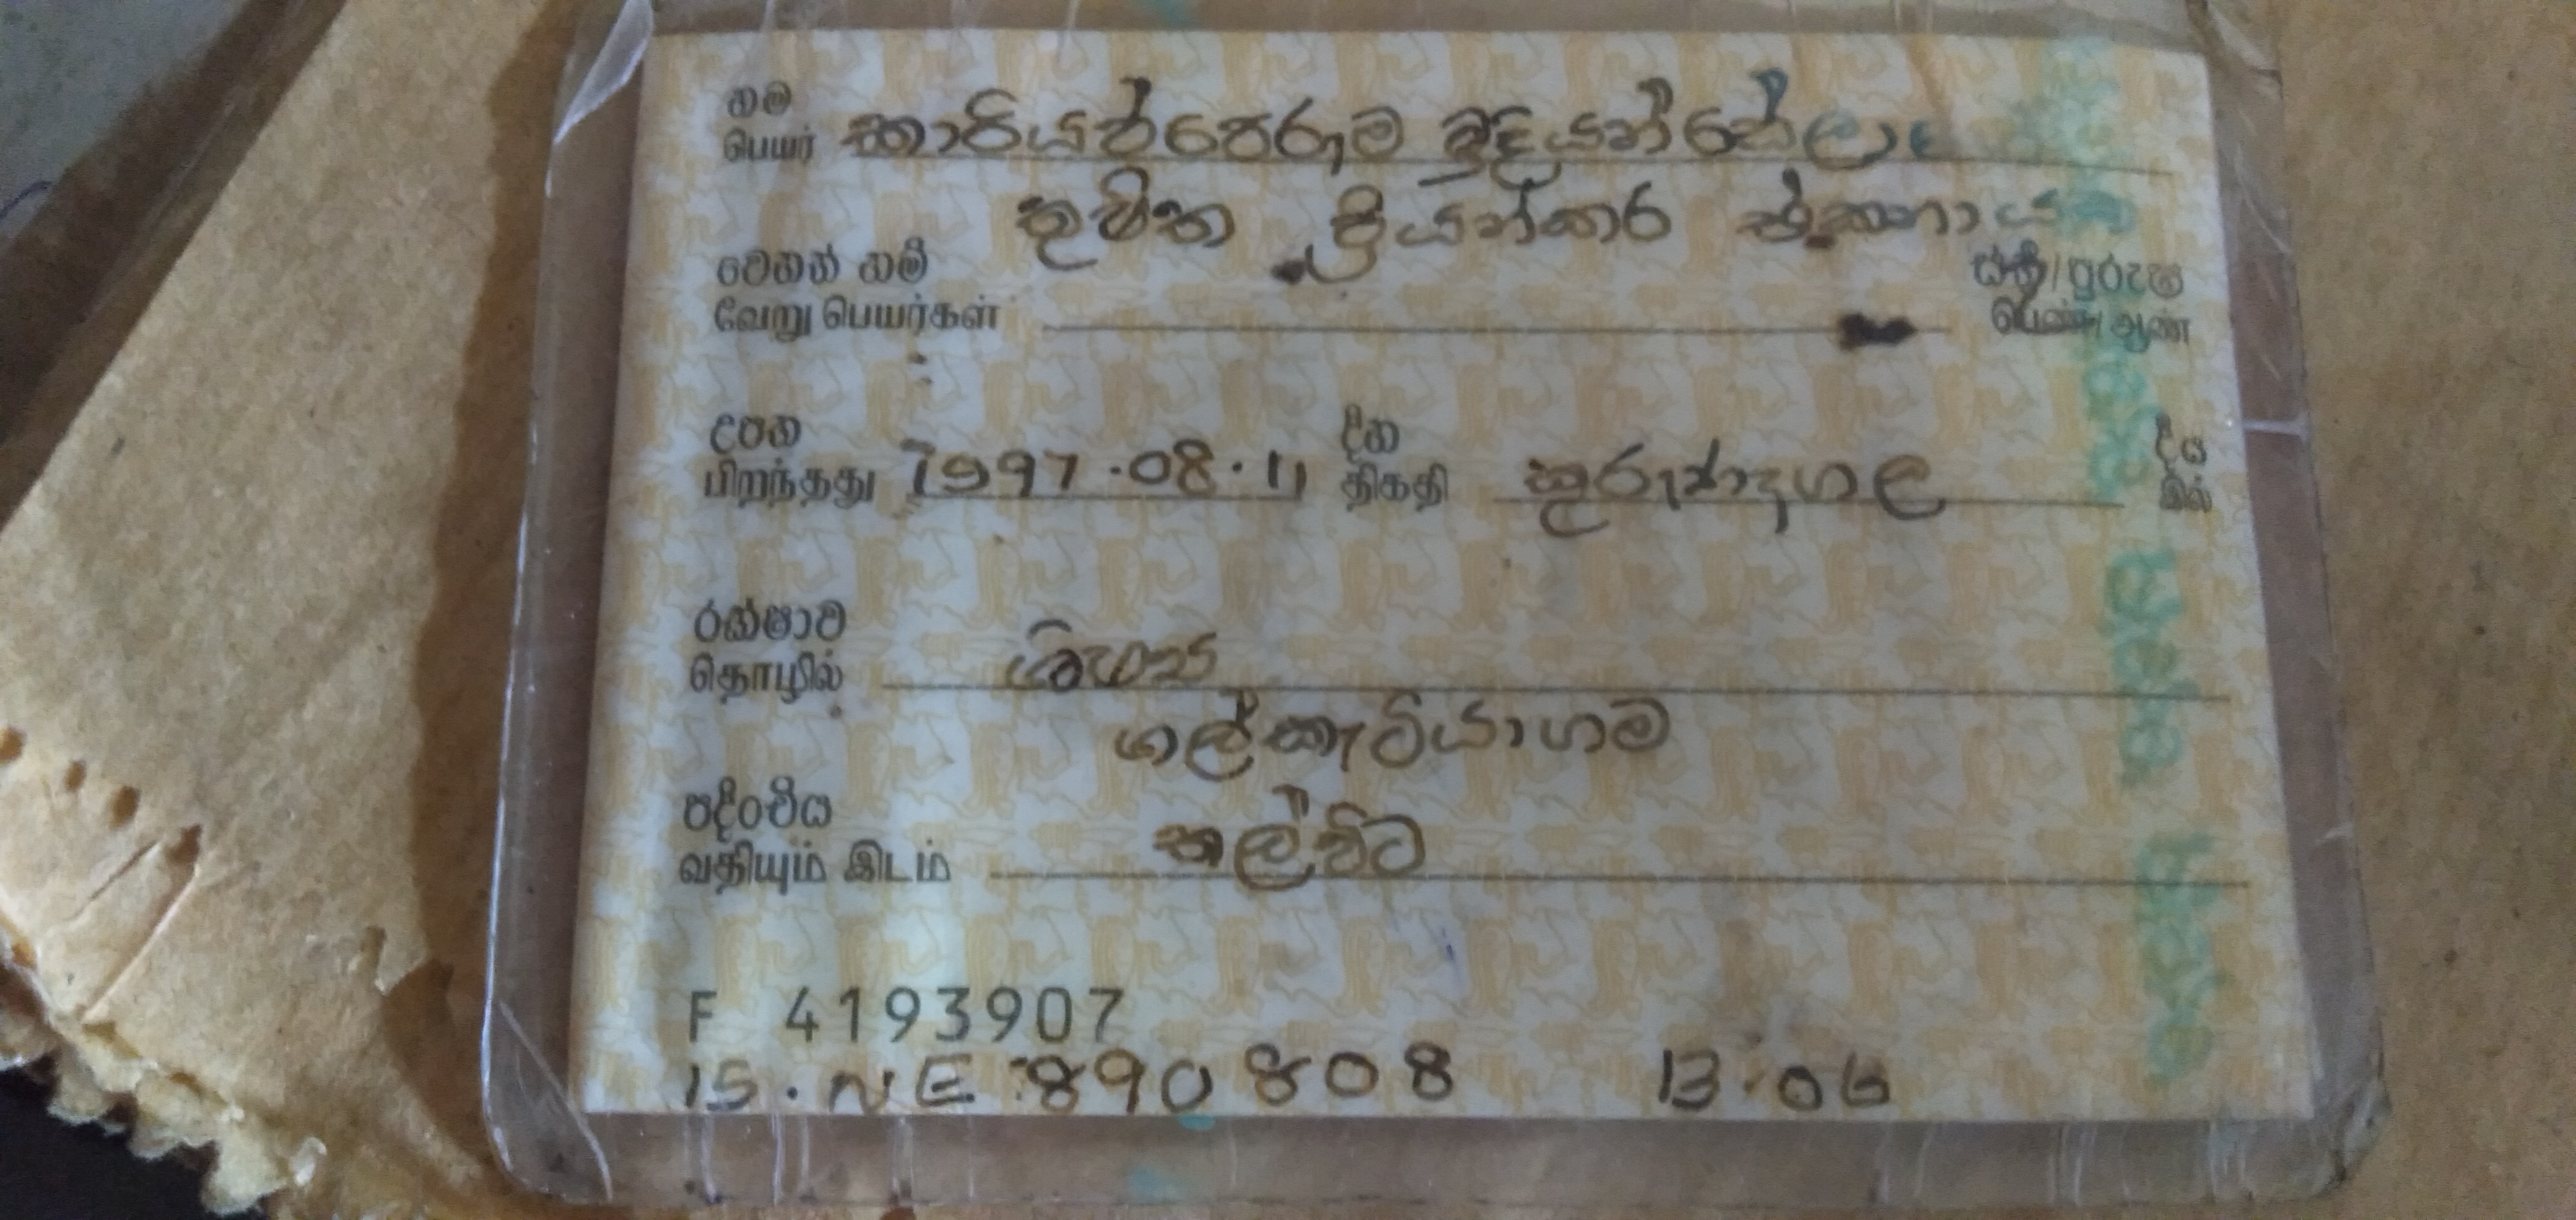 නම
பெயர் කාරියප්පෙරුම මුදියන්සේලා
තුමිත ප්‍රියන්කර ඒකනායක
වෙනත් නම් ස්ත්‍රී/පුරුෂ
வேறு பெயர்கள் பெண்/ஆண்
උපන දින දීය
பிறந்தது 1997.08.11 திகதி කුරුණෑගල இல்
රක්ෂාව
தொழில் ශිෂ්‍ය
ගල්කැටියාගම
පදිංචිය
வதியும் இடம் කල්විට
F 4193907
15.NE 890808 13.06